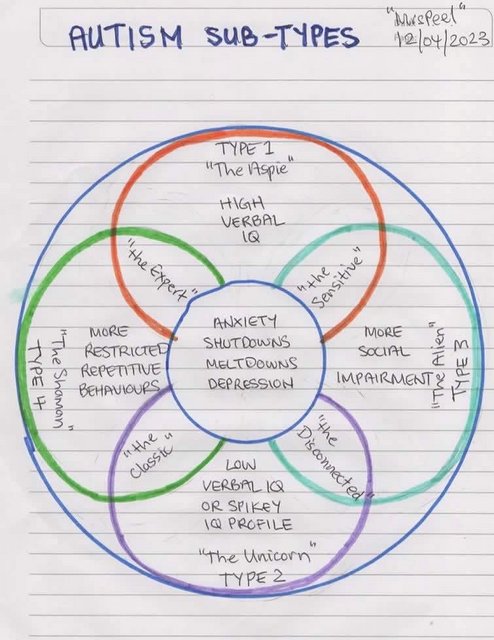 "MrsPeel"
12/04/2023
AUTISM SUB-TYPES
TYPE 1
"The Aspie"
HIGH
VERBAL
IQ
"the Expert"
"the
Sensitive"
ANXIETY
SHUTDOWNS
MELTDOWNS
DEPRESSION
MORE
RESTRICTED
REPETITIVE
BEHAVIOURS
"The Shaman"
TYPE 4
MORE
SOCIAL
IMPAIRMENT
"The Alien"
TYPE 3
"the
Classic"
"the
Disconnected"
LOW
VERBAL IQ
OR SPIKEY
IQ PROFILE
"The Unicorn"
TYPE 2